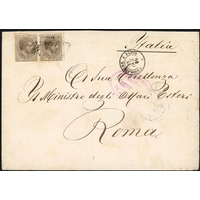 Italia
A Sua Eccellenza
Il Ministro degli Affari Esteri
Roma